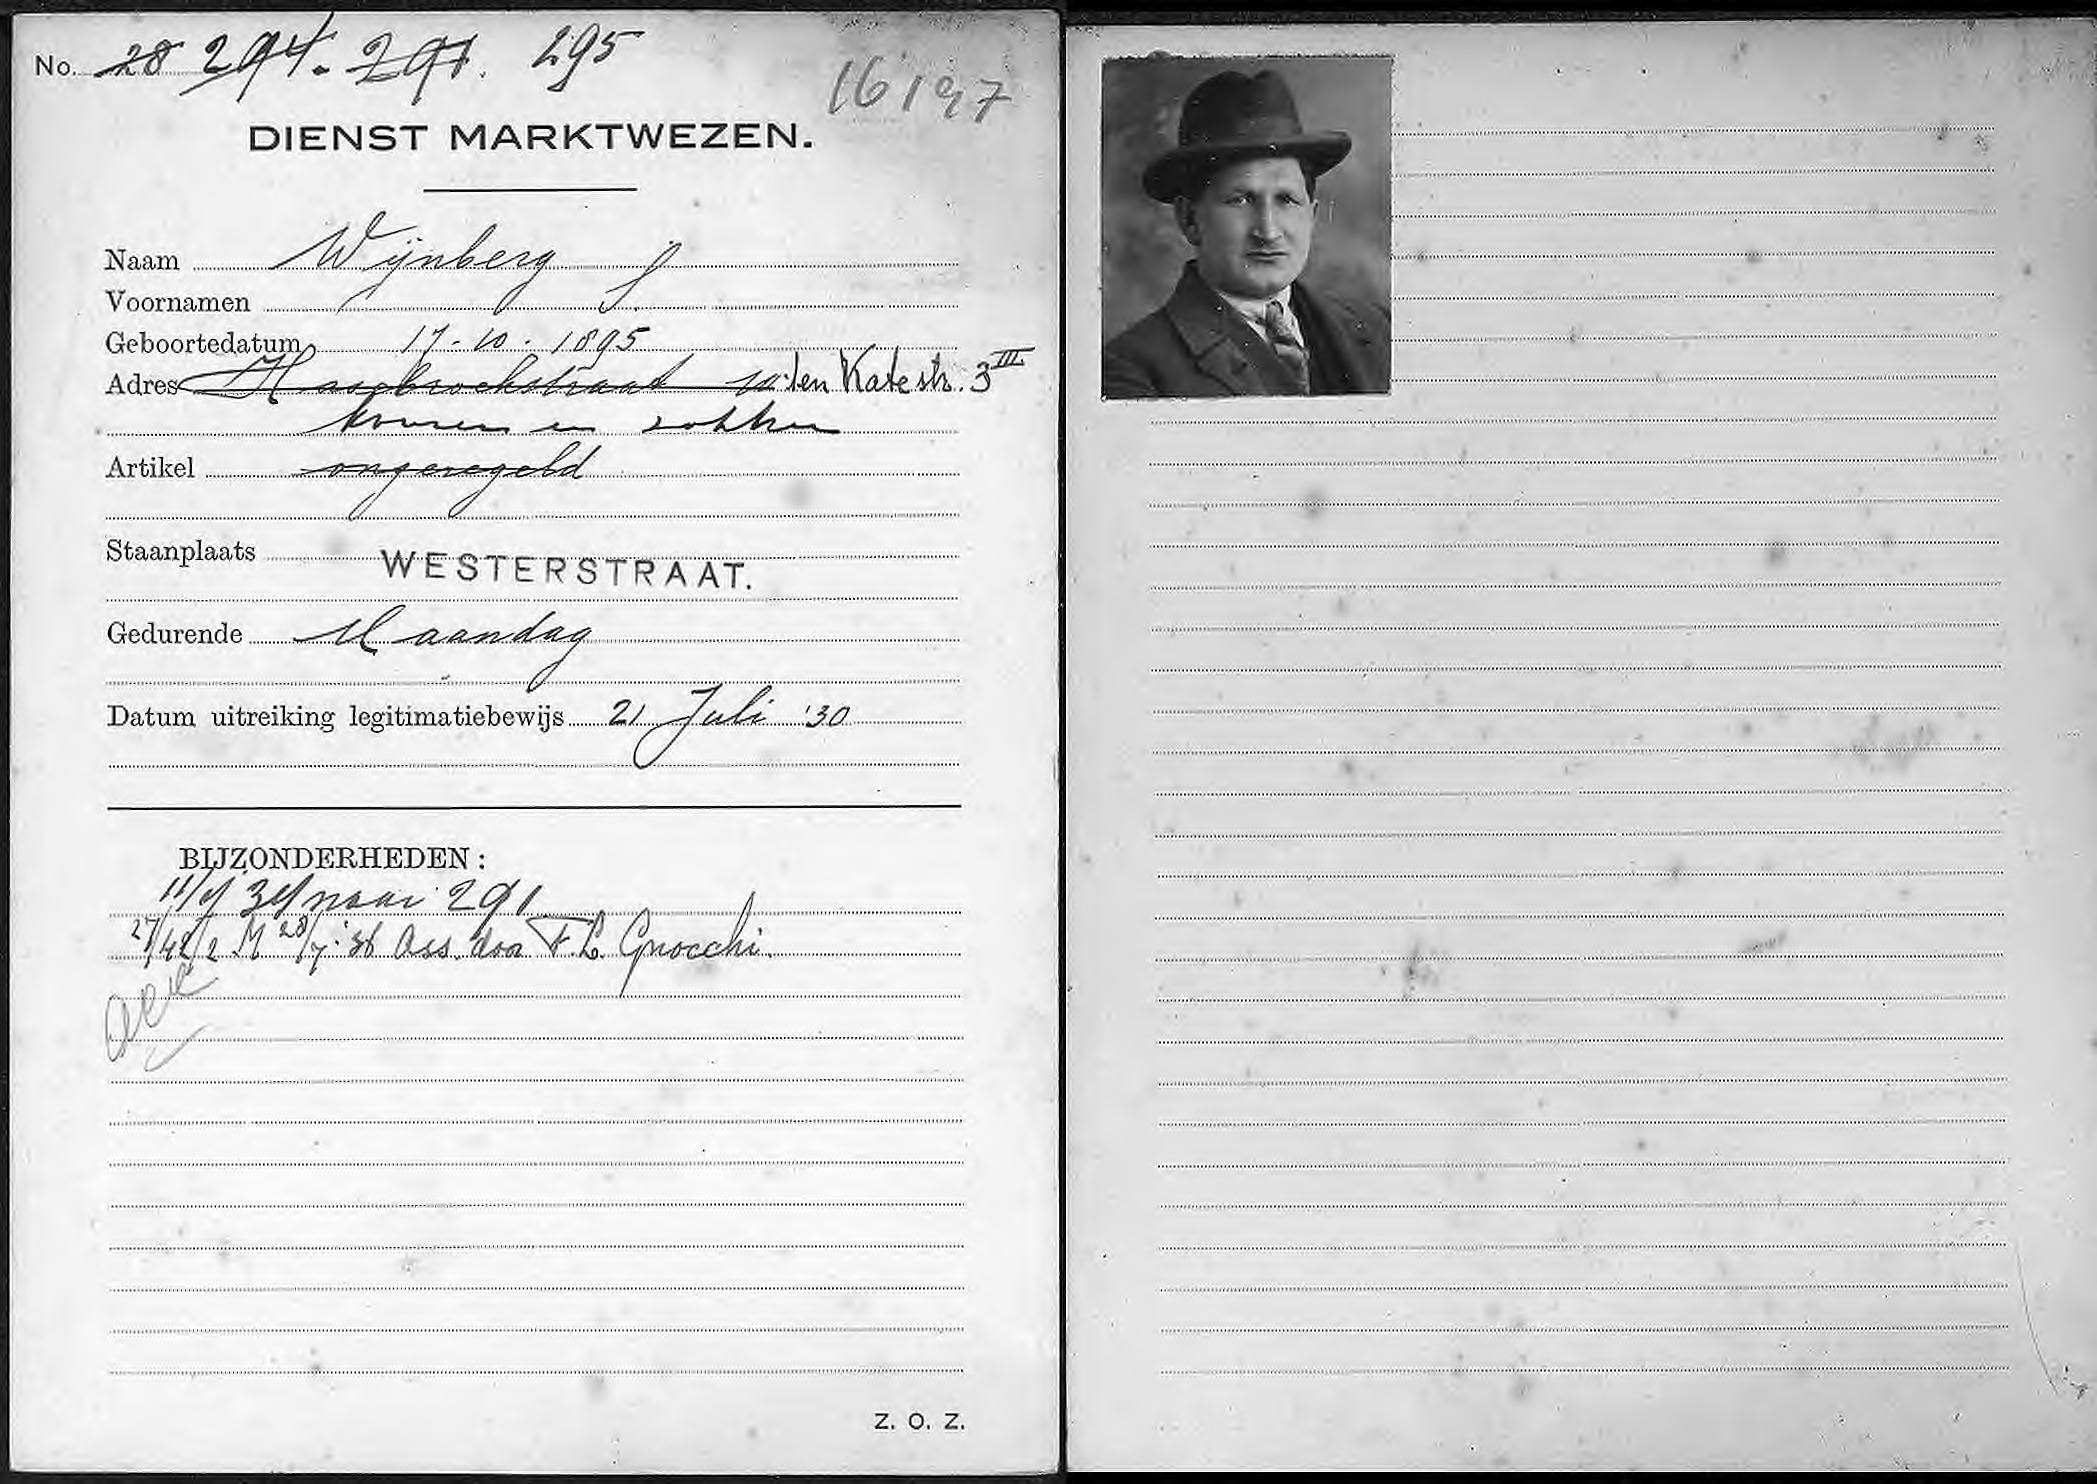 No. 28 294. 291. 295
16197
DIENST MARKTWEZEN.
Naam Wijnberg S
Voornamen
Geboortedatum 17-10-1895
Adres ten Kate str. 3 III
kousen en sokken
Artikel ongeregeld
Staanplaats WESTERSTRAAT.
Gedurende Maandag
Datum uitreiking legitimatiebewijs 21 Juli '30
BIJZONDERHEDEN:
naar 291
27/42/2 M 28/7 '36 Ass. door F.L. Gnocchi.
Z. O. Z.